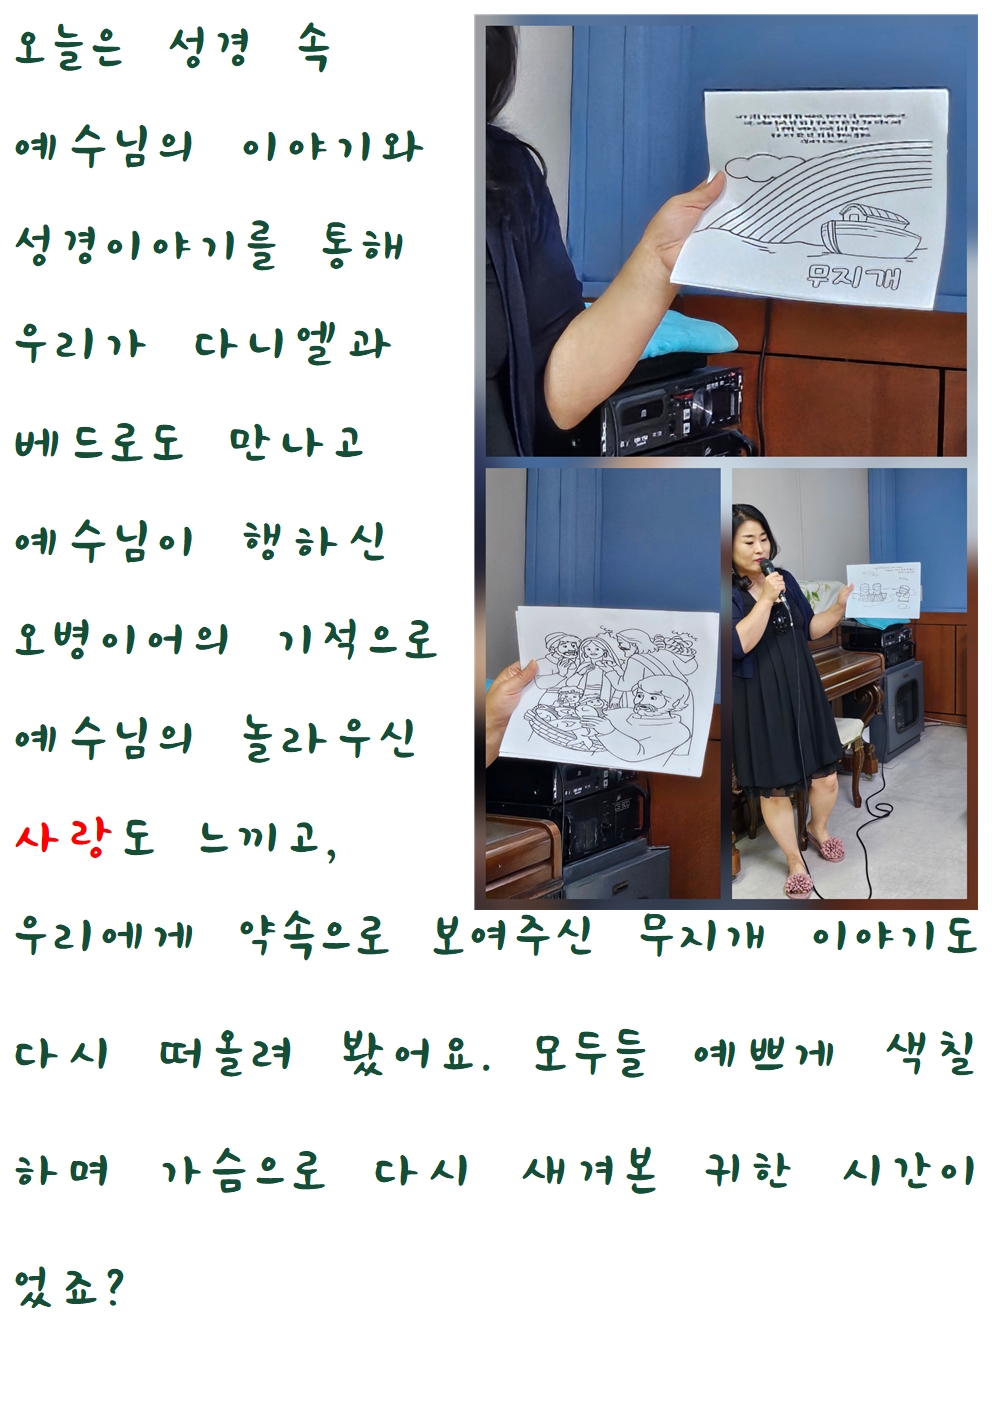 오늘은 성경 속
예수님의 이야기와
성경이야기를 통해
우리가 다니엘과
베드로도 만나고
예수님이 행하신
오병이어의 기적으로
예수님의 놀라우신
사랑도 느끼고,
우리에게 약속으로 보여주신 무지개 이야기도
다시 떠올려 봤어요. 모두들 예쁘게 색칠
하며 가슴으로 다시 새겨본 귀한 시간이
었죠?
무지개